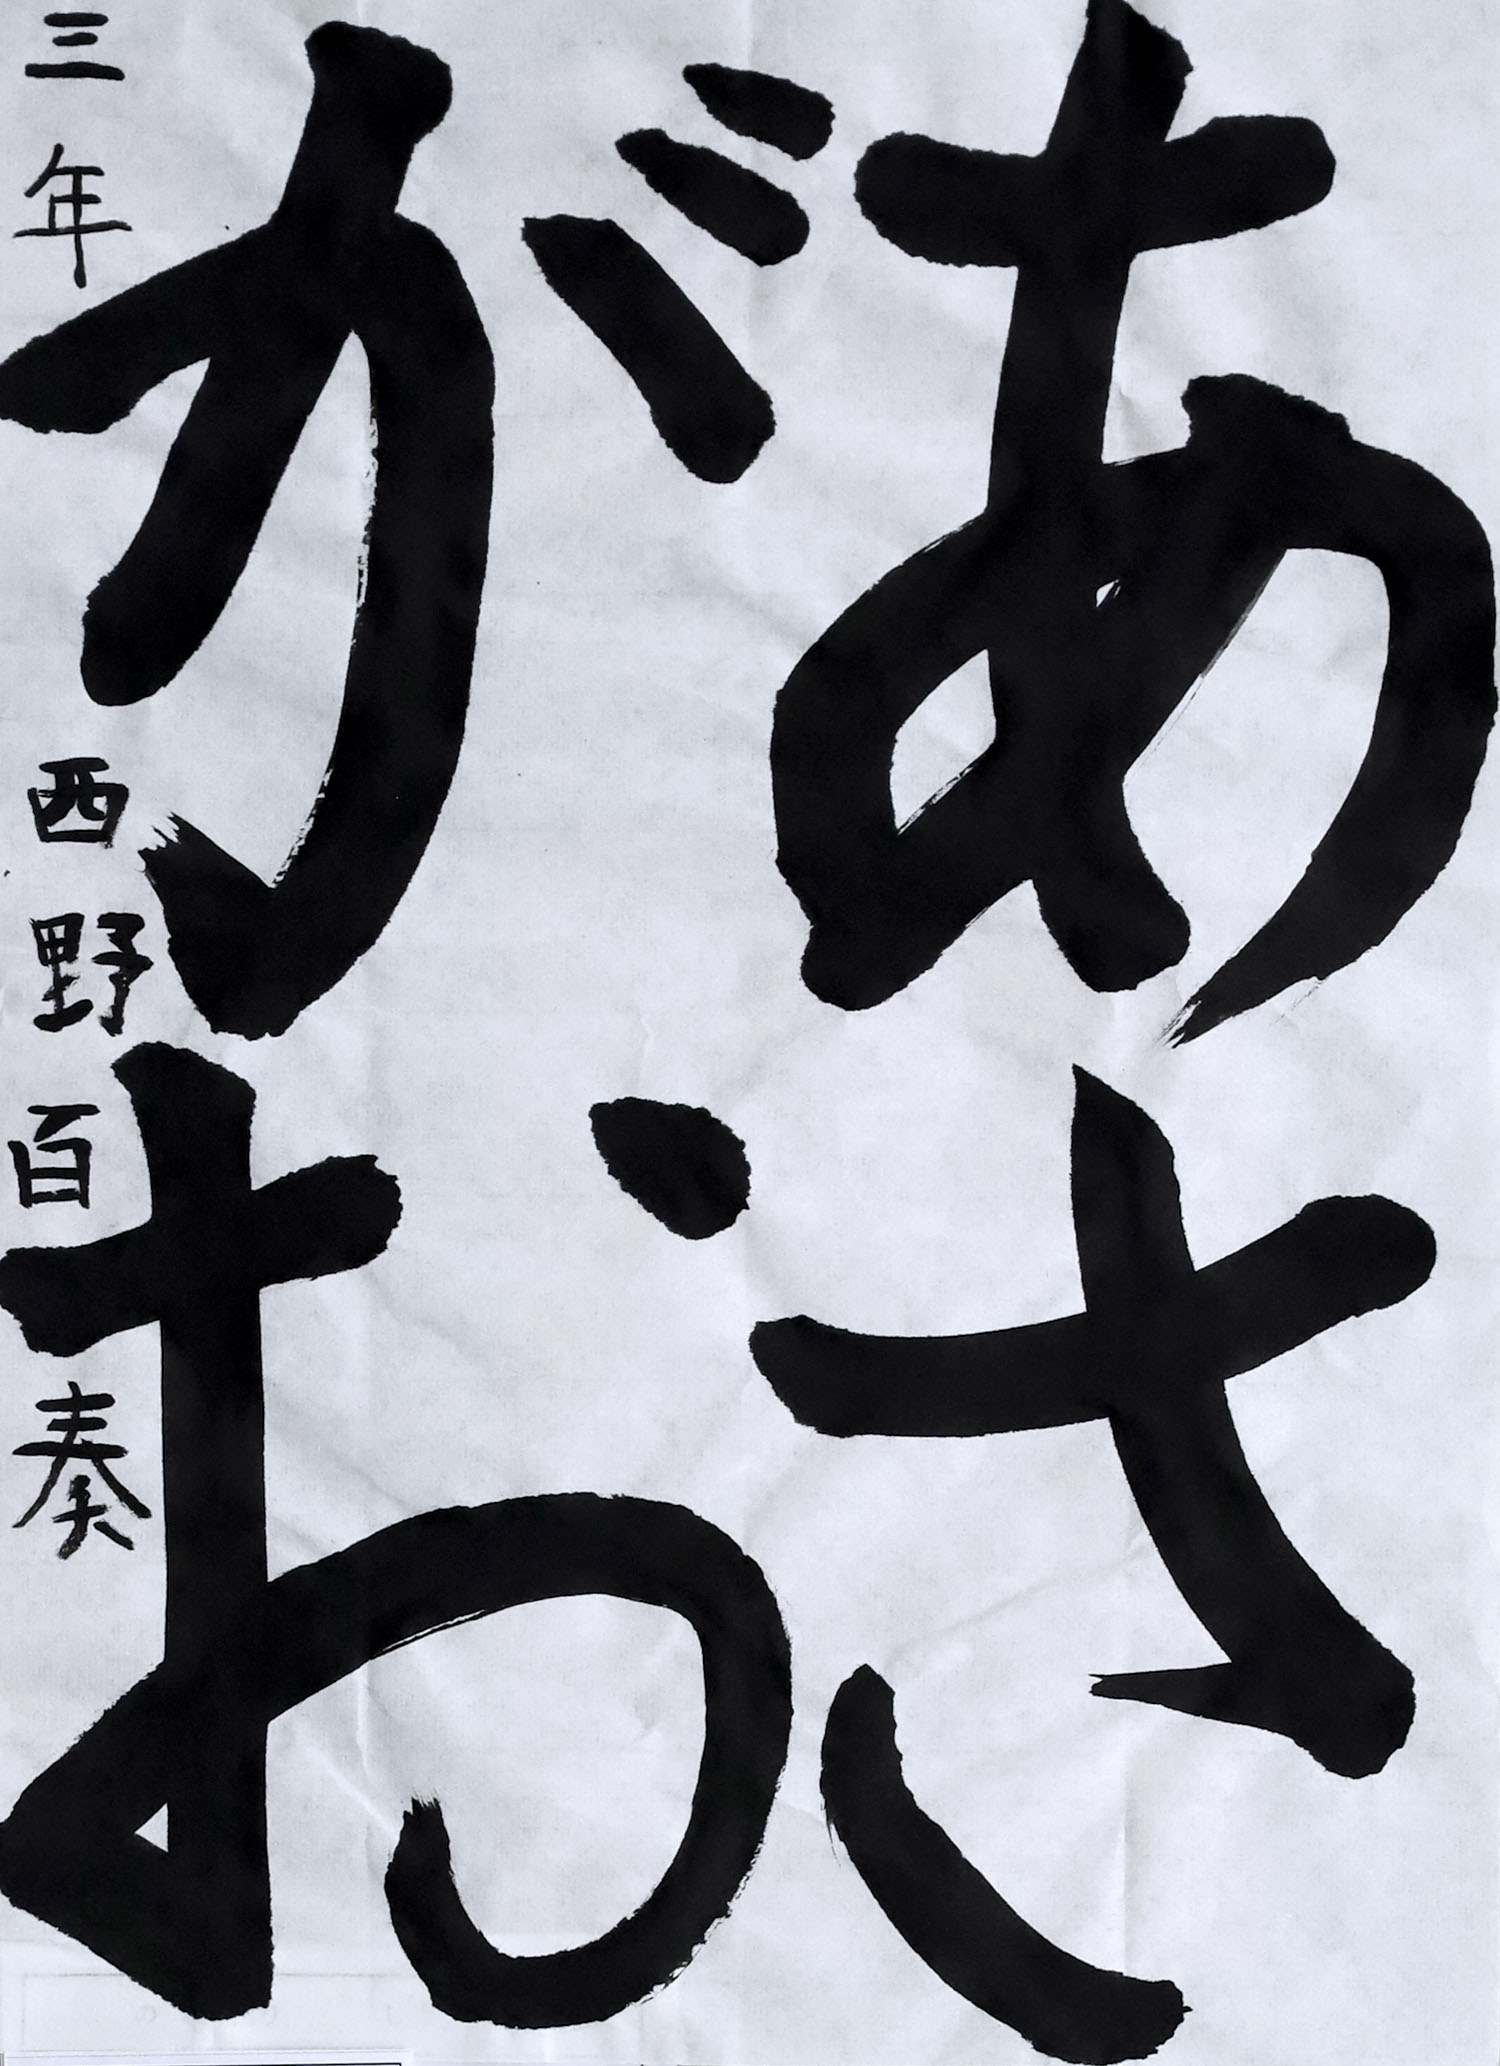 あさ
がお
三年 西野百奏